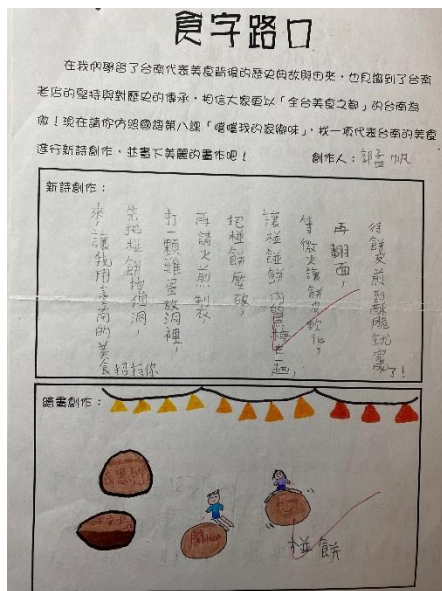 食字路口
在我們學習了台南代表美食背後的歷史典故與由來,也見識到了台南
老店的堅持與對歷史的傳承,相信大家更以「全台美食之都」的台南為
傲!現在請你仿照國語第八課「嚐嚐我的家鄉味」,找一項代表台南的美食
進行新詩創作,並畫下美麗的畫作吧!
創作人:郭
新詩創作:
來,讓我用臺南的美食招待你
先把椪餅挖個洞,
打一顆雞蛋放洞裡,
再請火煎到
把椪餅壓破,
讓椪餅內的黑糖在一起,
等微火讓餅皮軟化,
再翻面,
待餅皮煎到酥脆就完成了!
繪畫創作:
開心
椪餅